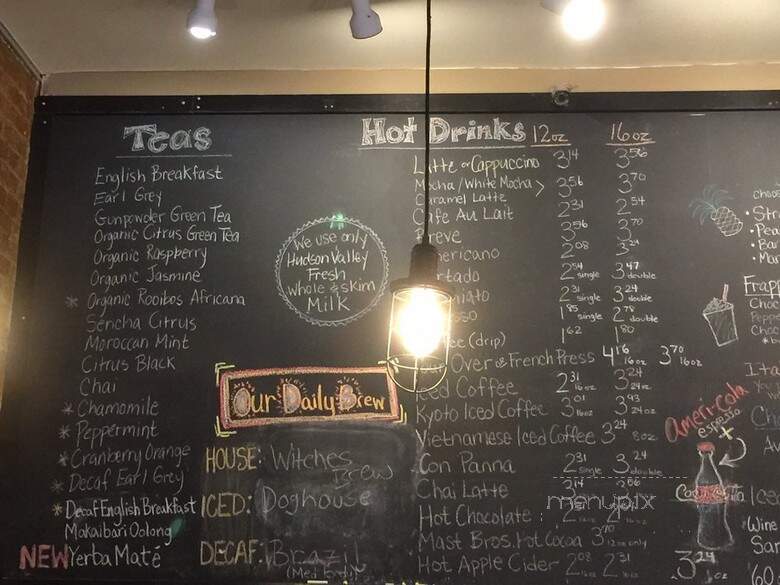 Teas
English Breakfast
Earl Grey
Gunpowder Green Tea
Organic Citrus Green Tea
Organic Raspberry
Organic Jasmine
* Organic Rooibos Africana
Sencha Citrus
Moroccan Mint
Citrus Black
Chai
* Chamomile
* Peppermint
* Cranberry Orange
* Decaf Earl Grey
* Decaf English Breakfast
Makaibari Oolong
NEW Yerba Maté
We use only
Hudson Valley
Fresh
Whole & Skim
Milk
Our Daily Brew
HOUSE: Witches
Brew
ICED: Doghouse
DECAF: Brazil
Hot Drinks 12oz 16oz
Latte or Cappuccino 3.14 3.56
Mocha/White Mocha > 3.56 3.70
Caramel Latte
Café Au Lait 2.31 2.54
Breve 3.56 3.70
2.08 3.24
2.54 single 3.47 double
2.31 single 3.24 double
1.85 single 2.78 double
(drip) 1.62 1.80
Over or French Press 4.16 16oz 3.70 16oz
Iced Coffee 2.31 16oz 3.24 24oz
Kyoto Iced Coffee 3.01 16oz 3.93 24oz
Vietnamese Iced Coffee 3.24 8oz
Con Panna 2.31 single 3.24 double
Chai Latte 3.14
Hot Chocolate
Mast Bros. Hot Cocoa
Hot Apple Cider 2.08 12oz 2.31 16oz
Ameri-cola
espresso
+
3.24
menupix